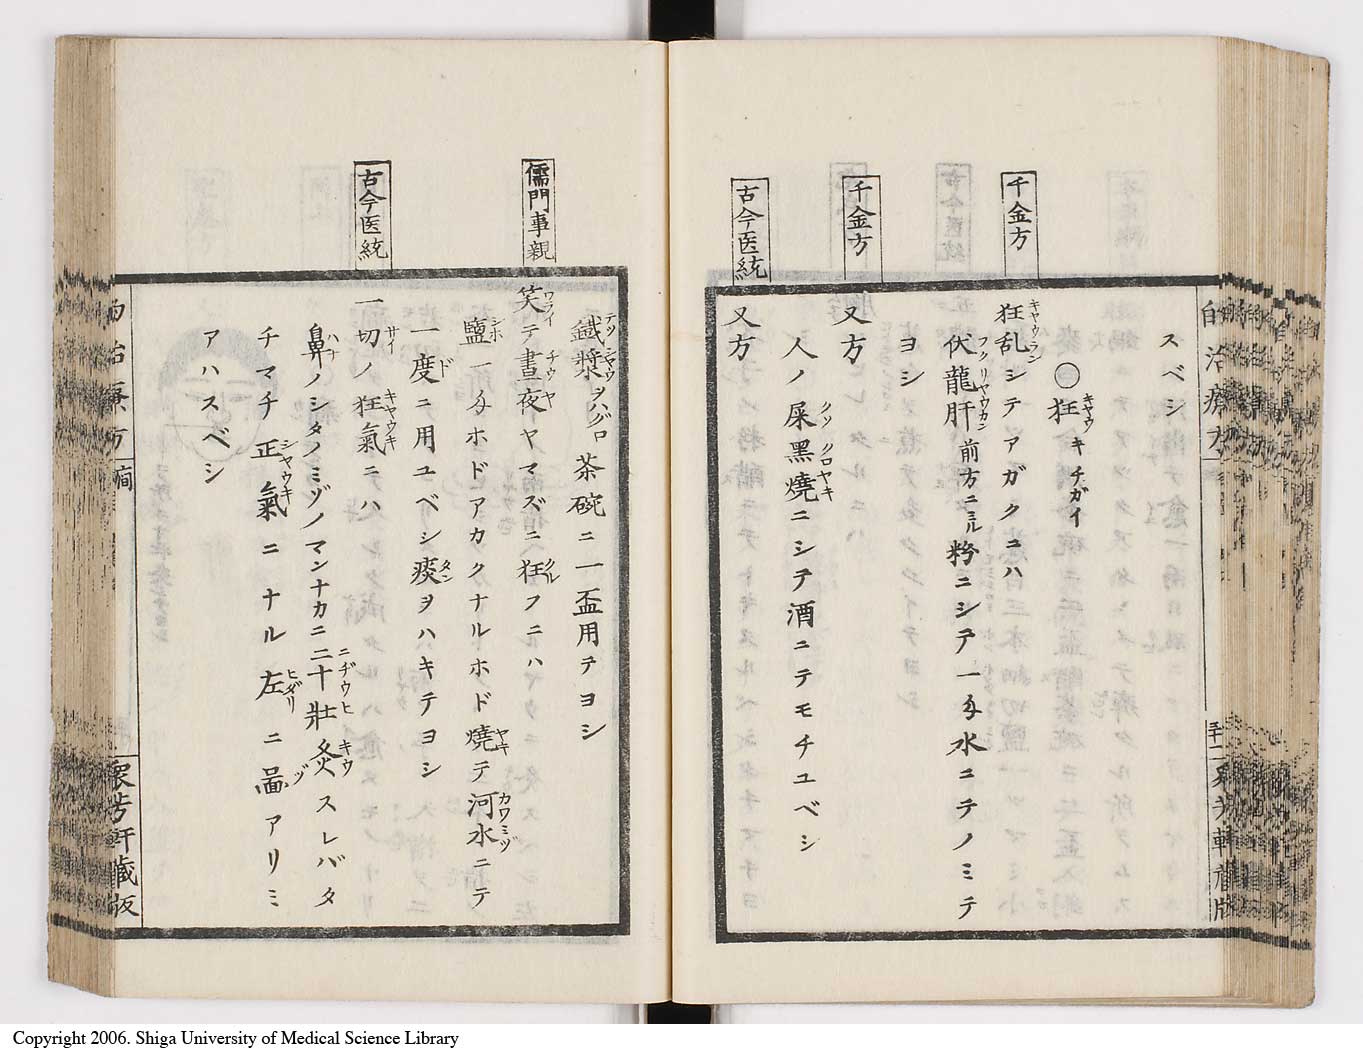 自治療方
五十二
衆芳軒蔵版
スベシ
㊀狂キヤウキチガイ
千金方
狂乱キヤウランシテアガクニハ
伏龍肝フクリヤウカン前方ニミル粉ニシテ一匁水ニテノミテ
ヨシ
千金方
又方
人ノ屎クソ黒焼クロヤキニシテ酒ニテモチユベシ
古今医統
又方
鐵漿テツシヤウヲハグロ茶碗ニ一盃用テヨシ
儒門事親
笑ワライテ晝夜チウヤヤマズニ狂クルフニハ
鹽シホ一匁ホドアカクナルホド燒ヤキテ河水カワミヅニテ
一度ドニ用ユベシ痰タンヲハキテヨシ
古今医統
一切サイノ狂氣キヤウキニハ
鼻ハナノシタノミゾノマンナカニ二十ニヂウヒ壮灸キウスレバタ
チマチ正氣シヤウキニナル左ヒダリニ啚ヅアリミ
アハスベシ
自治療方
癇
衆芳軒蔵版
Copyright 2006. Shiga University of Medical Science Library